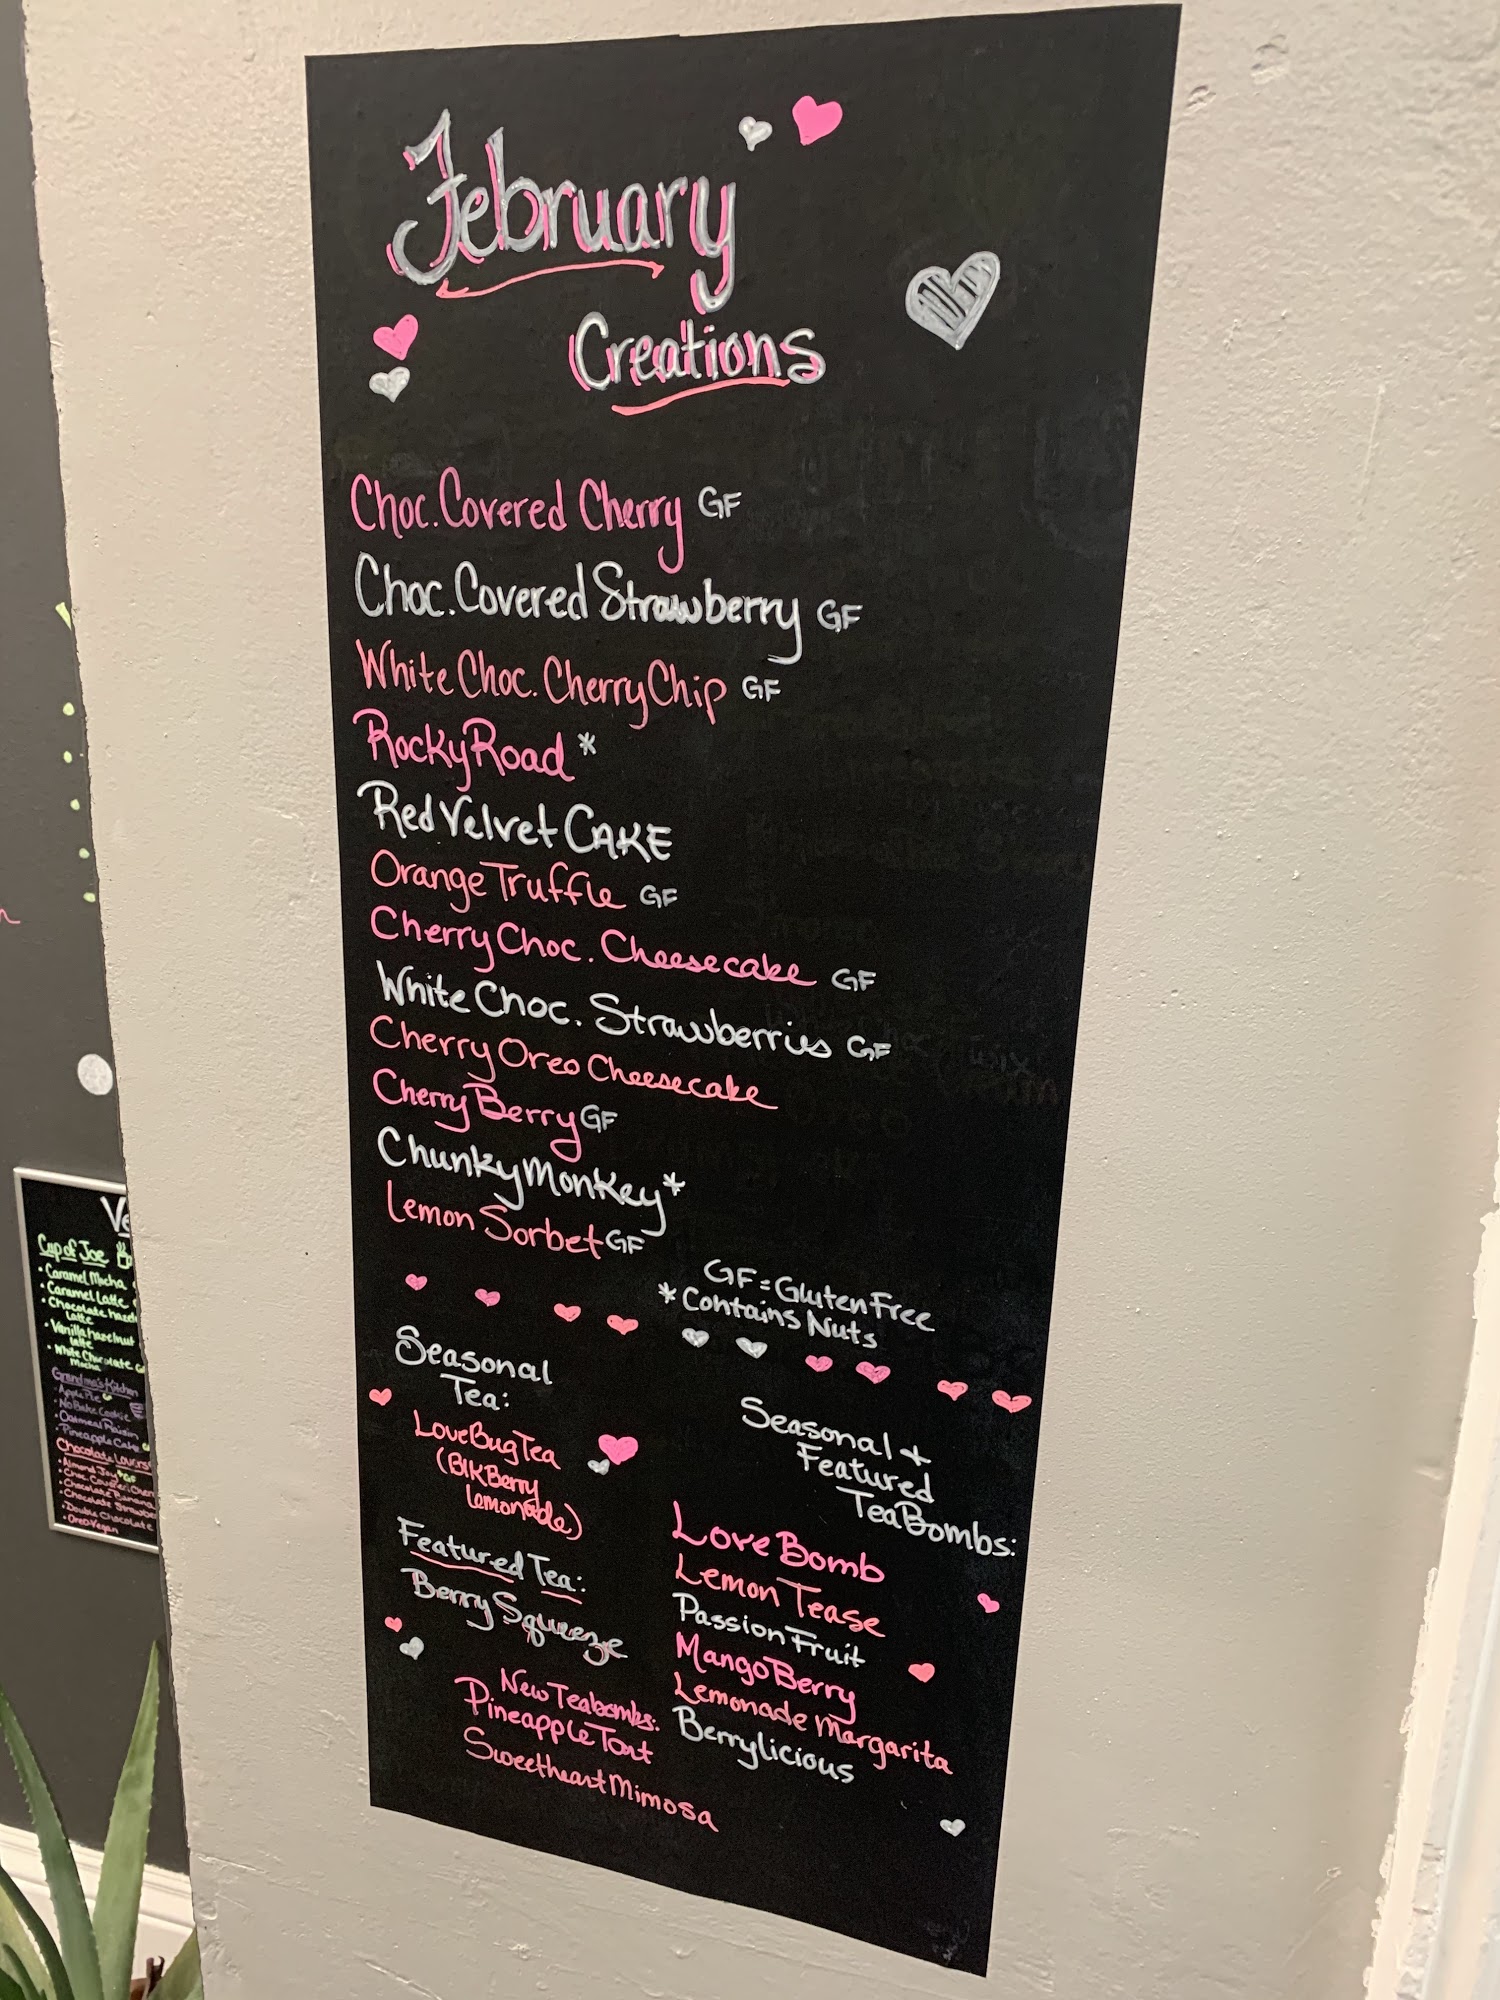 February
Creations
Choc. Covered Cherry GF
Choc. Covered Strawberry GF
White Choc. Cherry Chip GF
Rocky Road *
Red Velvet CAKE
Orange Truffle GF
Cherry Choc. Cheesecake GF
White Choc. Strawberries GF
Cherry Oreo Cheesecake
Cherry Berry GF
Chunky Monkey *
Lemon Sorbet GF
GF = Gluten Free
* Contains Nuts
Seasonal
Tea:
Love Bug Tea
(Blk Berry
Lemonade)
Featured Tea:
Berry Squeeze
New Teabombs:
Pineapple Tart
Sweetheart Mimosa
Seasonal +
Featured
TeaBombs:
Love Bomb
Lemon Tease
Passion Fruit
Mango Berry
Lemonade Margarita
Berrylicious
Cup of Joe
• Caramel Mocha
• Caramel Latte
• Chocolate
latte
• Vanilla hazelnut
latte
• White Chocolate
Mocha
Grandma's Kitchen
• Apple Pie
• No Bake Cookie
• Oatmeal Raisin
• Pineapple Cake
Chocolate
• Almond Joy * GF
• Choc. Covered
• Chocolate Banana
• Chocolate
• Double Chocolate
• Oreo-Vegan